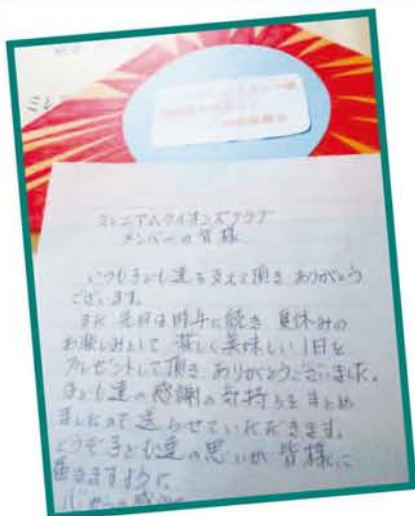 ミレ
ミレニアムライオンズクラブ
メンバーの皆様
いつも子ども達を支えて頂き ありがとう
ございます。
また 先日は昨年に続き 夏休みの
お楽しみとして 涼しく美味しい1日を
プレゼントして頂き ありがとうございました。
子ども達の感謝の気持ちをまとめ
ましたので送らせていただきます。
どうぞ子ども達の思いが 皆様に
届きますように